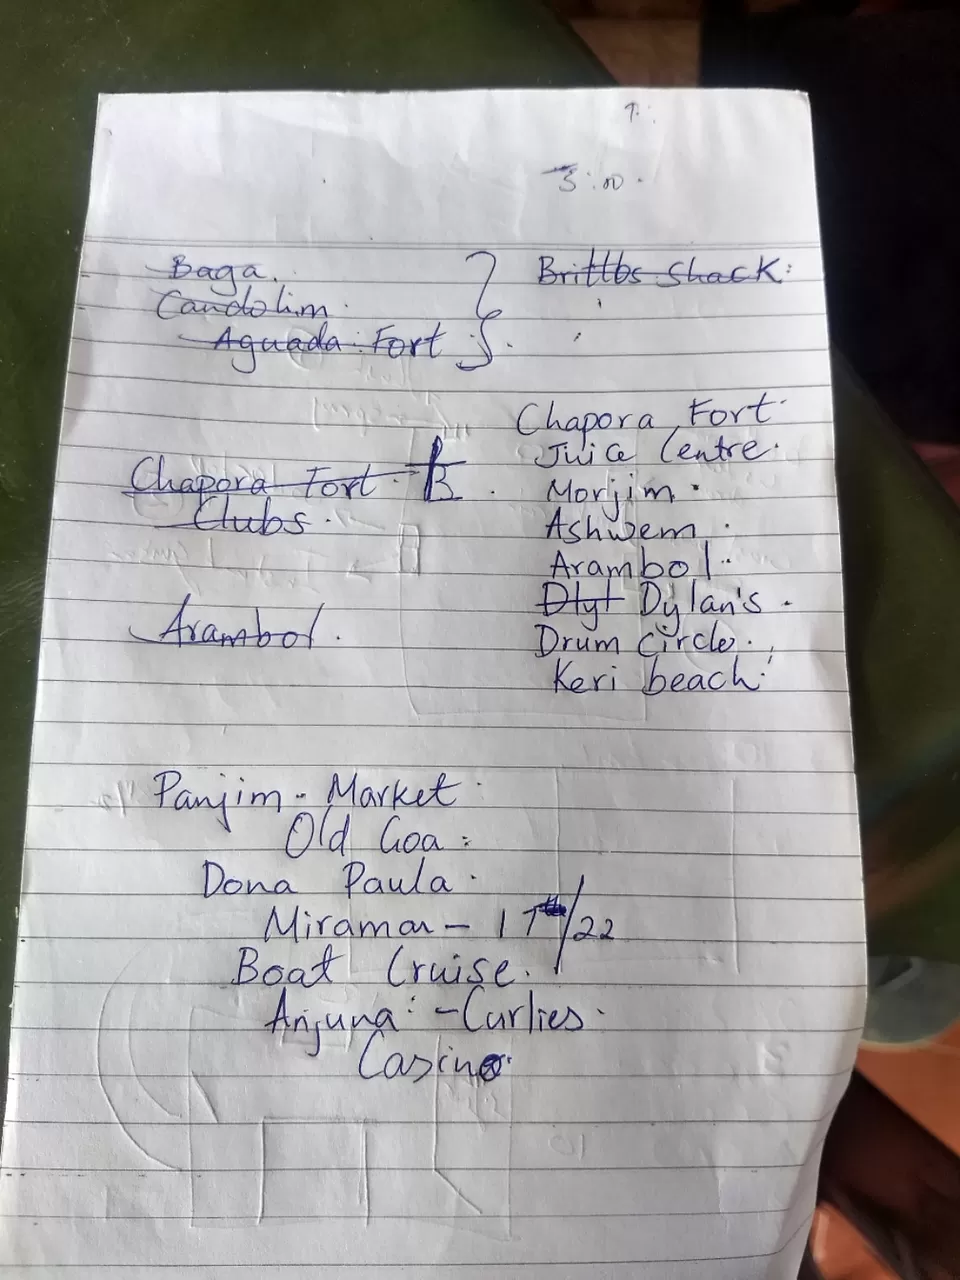 3:00.
Baga.
Candolim.
Aguada Fort
Brittbs Shack:
Chapora Fort. B.
Clubs.
Arambol.
Chapora Fort.
Juice Centre.
Morjim.
Ashwem.
Arambol.
Dlyl Dylan's.
Drum Circle.
Keri beach.
Panjim - Market.
Old Goa:
Dona Paula.
Miramar - 17th/22
Boat Cruise.
Anjuna: - Curlies.
Casino.